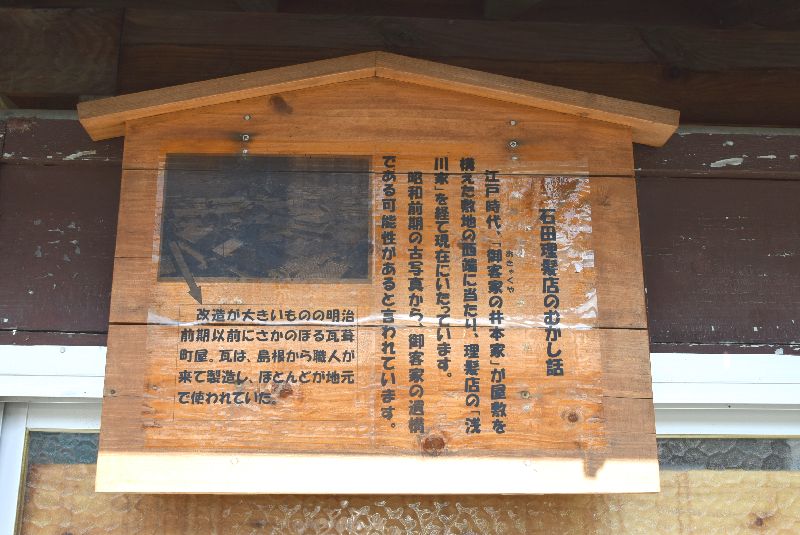 石田理髪店のむかし話
おきゃくや
江戸時代、「御客家の井本家」が屋敷を
構えた敷地の西端に当たり、理髪店の「浅
川家」を経て現在にいたっています。
昭和前期の古写真から、御客家の遺構
である可能性があると言われています。
改造が大きいものの明治
前期以前にさかのぼる瓦葺
町屋。瓦は、島根から職人が
来て製造し、ほとんどが地元
で使われていた。